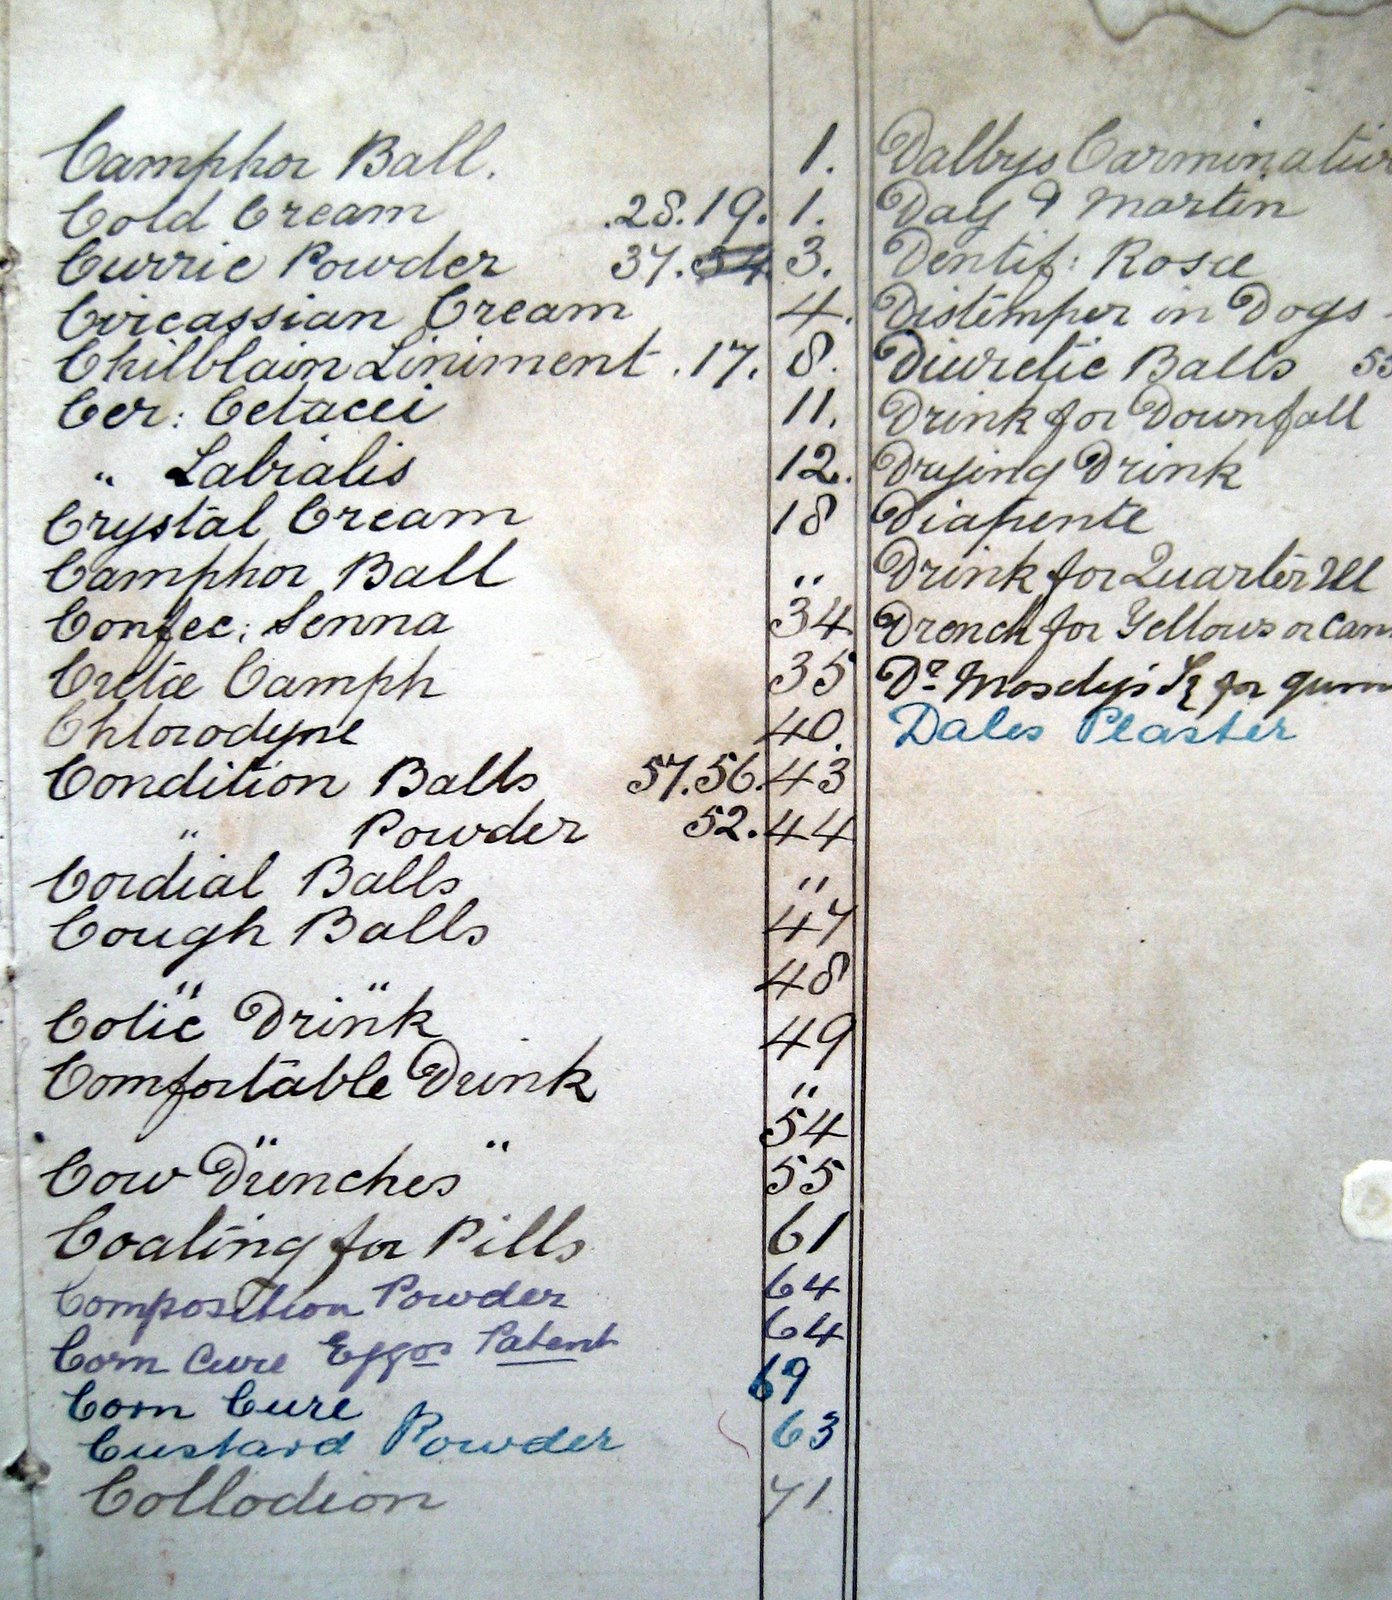 Camphor Ball. 1.
Cold Cream .28.19. 1.
Currie Powder 37. 3.
Circassian Cream 4.
Chilblain Liniment .17. 8.
Cer: Cetacei 11.
" Labialis 12.
Crystal Cream 18
Camphor Ball "
Confec: Senna 34
Cretæ Camph 35
Chlorodyne 40.
Condition Balls 57.56. 43
" Powder 52. 44
Cordial Balls "
Cough Balls 47
" " 48
Colic Drink 49
Comfortable Drink "
" " 54
Cow Drenches 55
Coating for Pills 61
Composition Powder 64
Corn Cure Patent 64
Corn Cure 69
Custard Powder 63
Collodion 71.
Dalbys
Day & Martin
Dentif: Rosæ
Distemper in Dogs
Diuretic Balls
Drink for Downfall
Drying Drink
Diapente
Drink for Quarter Ill
Drench for Yellows or
Dr for
Dales Plaster